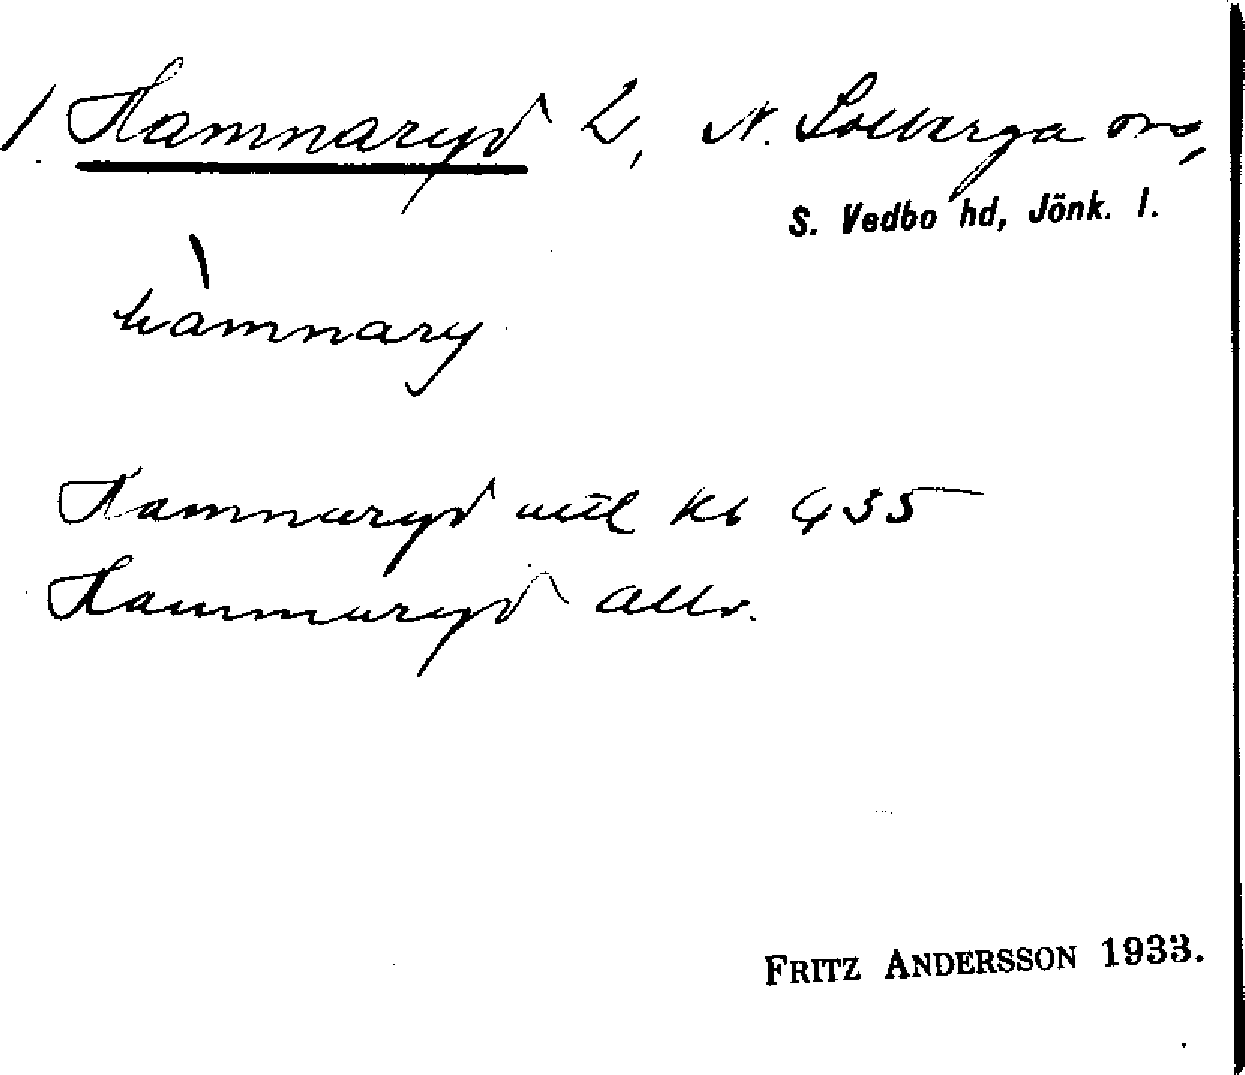 1. Hamnaryd L, N. Solberga sn,
S. Vedbo hd, Jönk. l.
hàmnary
Hamnaryd uttl kb G 35
Hamnaryd allm.
FRITZ ANDERSSON 1933.